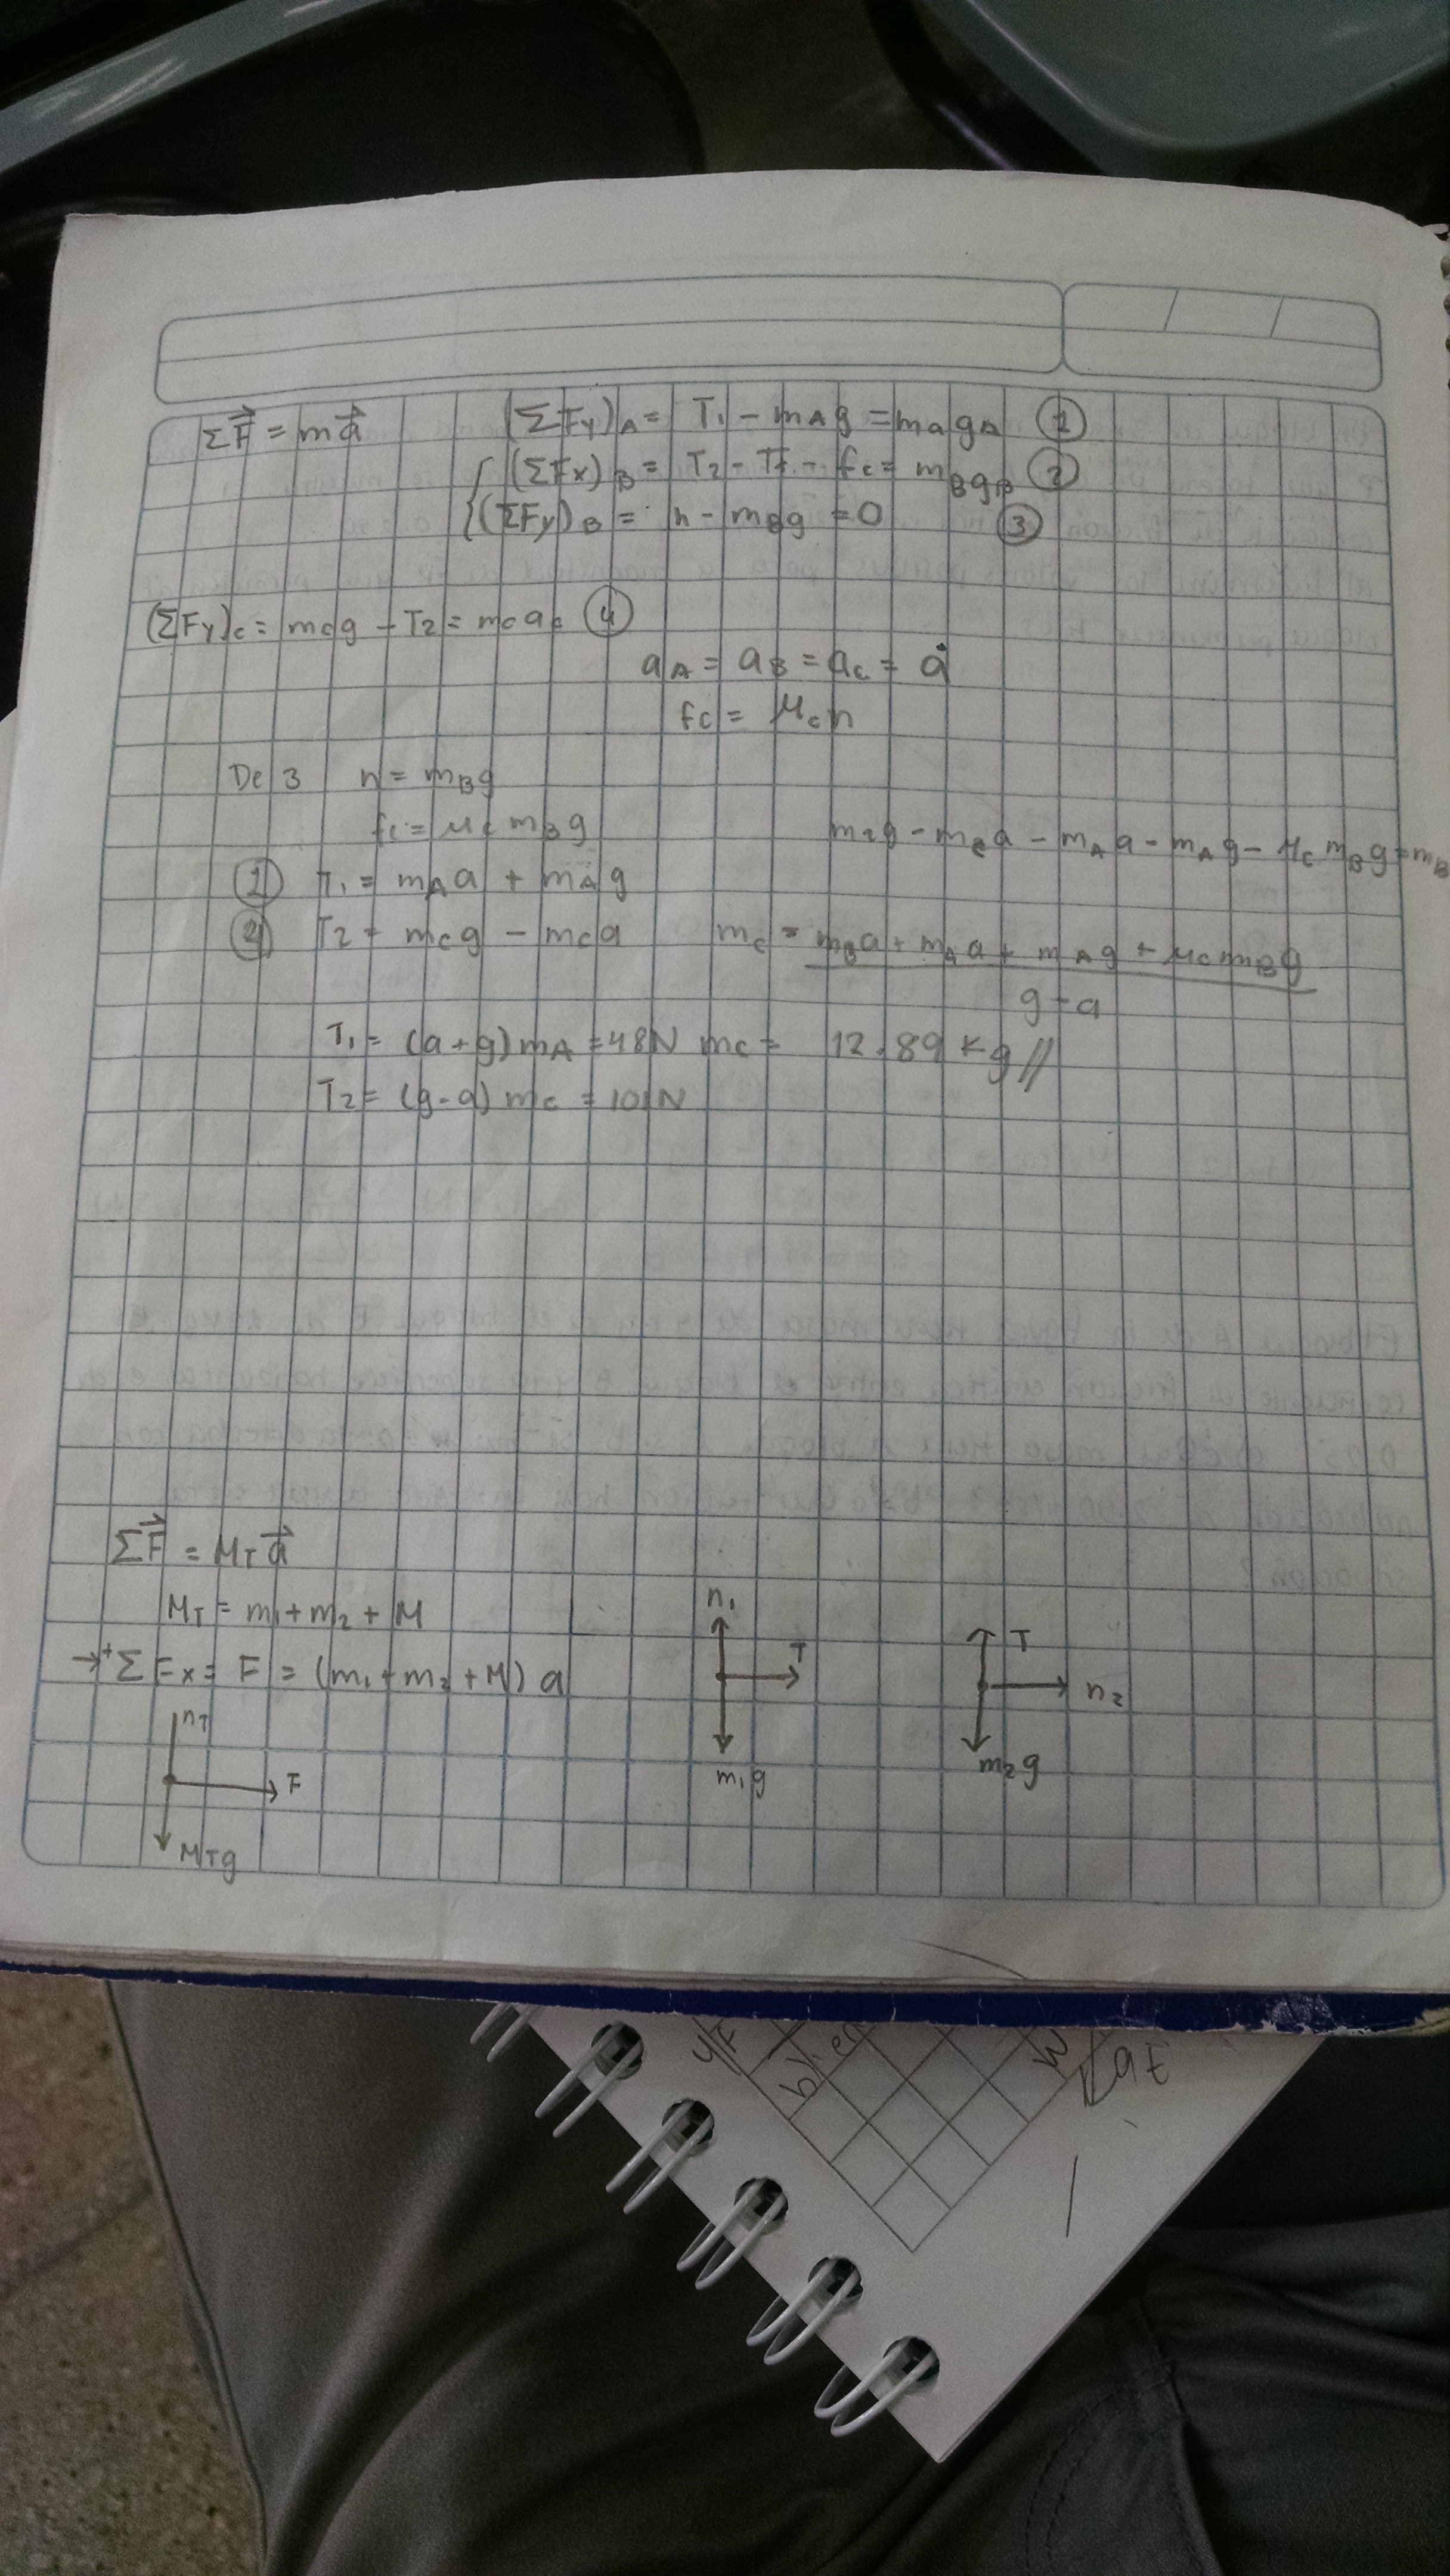 ΣF⃗ = ma⃗ (ΣFy)A = T1 - mAg = mAgA ①
(ΣFx)B = T2 - T1 - fc = mBgB ②
(ΣFy)B = n - mBg = 0 ③
(ΣFy)c = mcg - T2 = mcac ④
aA = aB = ac = a
fc = μcn
De 3 n = mBg
fc = μc mBg
mcg - mca - mAa - mAg - μc mBg = mB
① T1 = mAa + mAg
④ T2 = mcg - mca
mc = mBa + mAa + mAg + μcmBg
g - a
T1 = (a+g)mA = 48N mc = 12.89 Kg //
T2 = (g-a) mc = 101N
ΣF⃗ = MTa⃗
MT = m1 + m2 + M
→+ ΣFx = F = (m1 + m2 + M) a
nT
F
MTg
n1
T
m1g
T
n2
m2g
at